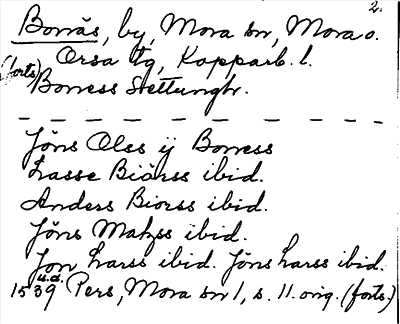 2.
Borrås, by, Mora sn, Mora o.
Orsa tg, Kopparb. l.
(forts)
Borress Settungh.
Jöns Olss ij Borress
Lasse Biörss ibid.
Anders Biorss ibid.
Jöns Matzss ibid.
Jon Larss ibid. Jöns Larss ibid.
u.å.
1539 Pers, Mora sn 1, s. 11. orig. (forts.)